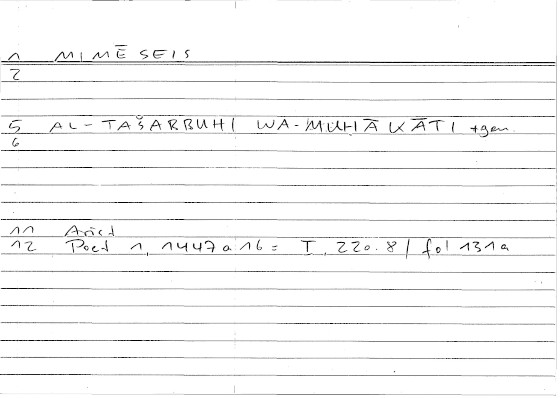 1 MIMĒSEIS
2
5 AL-TAŠARBUHI WA-MUḤĀKĀTI +gen.
6
11 Arist
12 Poet 1, 1447a16 = T, 220.8 / fol 131a